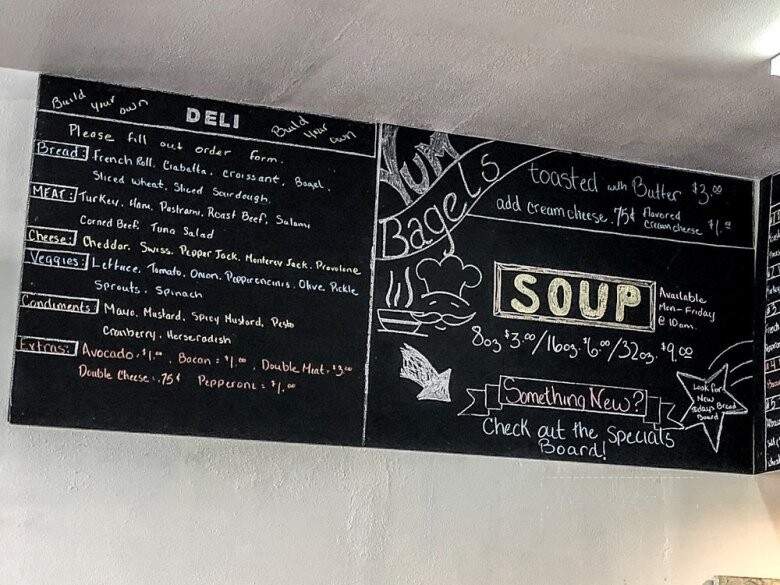 Build your own
DELI
Build your own
Please fill out order form.
Bread: French Roll, Ciabatta, Croissant, Bagel,
Sliced wheat, Sliced Sourdough
MEAT: Turkey, Ham, Pastrami, Roast Beef, Salami
Corned Beef, Tuna Salad
Cheese: Cheddar, Swiss, Pepper Jack, Monterey Jack, Provolone
Veggies: Lettuce, Tomato, Onion, Pepperoncinis, Olive, Pickle
Sprouts, Spinach
Condiments: Mayo, Mustard, Spicy Mustard, Pesto
Cranberry, Horseradish
Extras: Avocado = $1.00, Bacon = $1.00, Double Meat = $3.00
Double Cheese = .75¢ Pepperoni = $1.00
YUM
Bagels
toasted with Butter $3.00
add cream cheese .75¢ flavored cream cheese $1.00
SOUP
Available
Mon-Friday
@ 10am.
8oz $3.00/16oz $6.00/32oz $9.00
Something New?
Check out the Specials
Board!
Look for
New
Todays Bread
Board